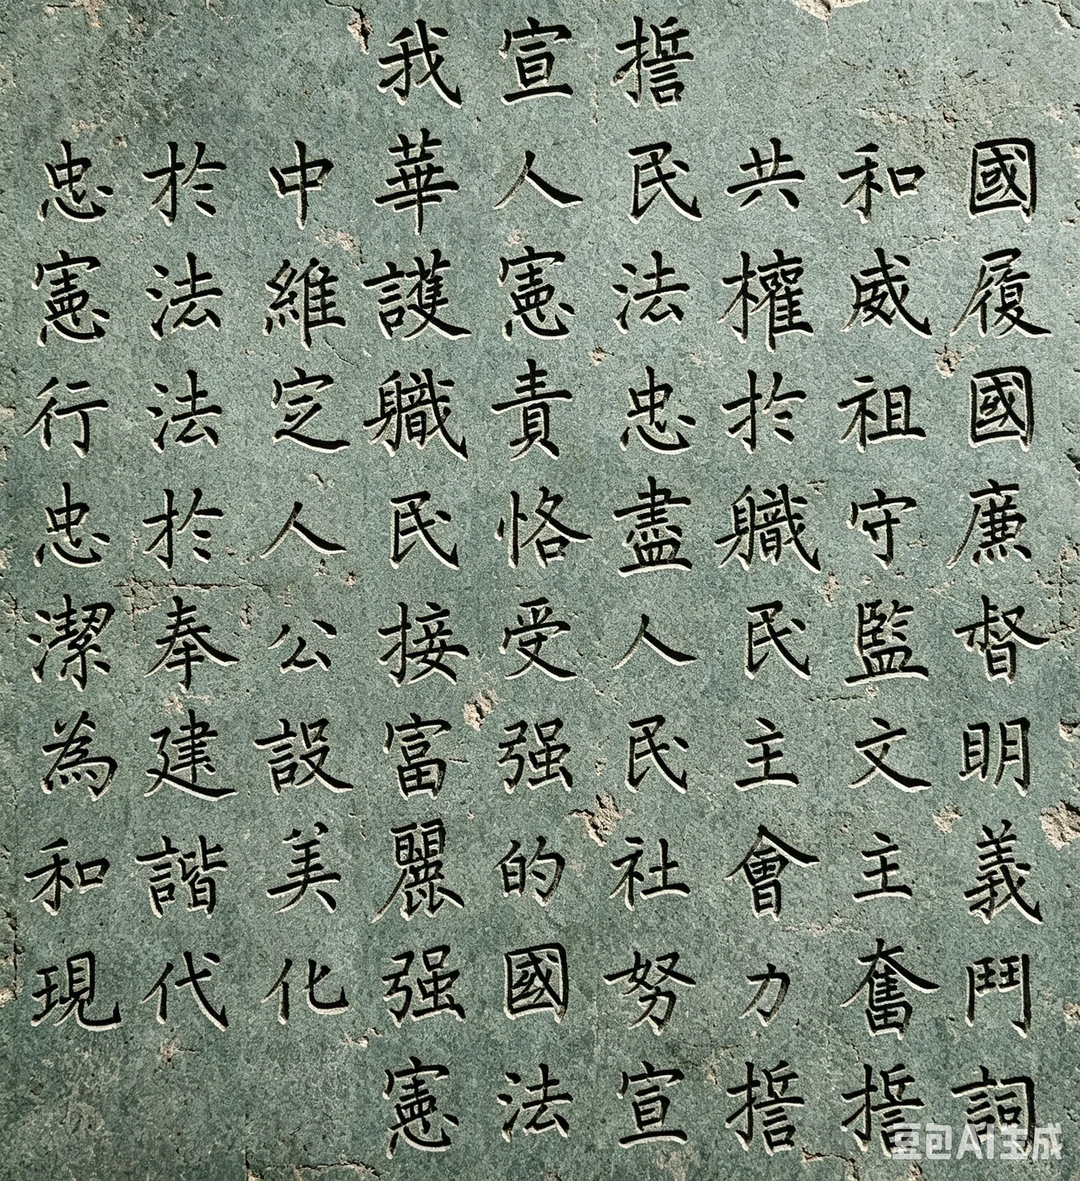 我宣誓
忠於中華人民共和國
憲法維護憲法權威履
行法定職責忠於祖國
忠於人民恪盡職守廉
潔奉公接受人民監督
為建設富强民主文明
和諧美麗的社會主義
現代化强國努力奮鬥
憲法宣誓誓詞
豆包AI生成